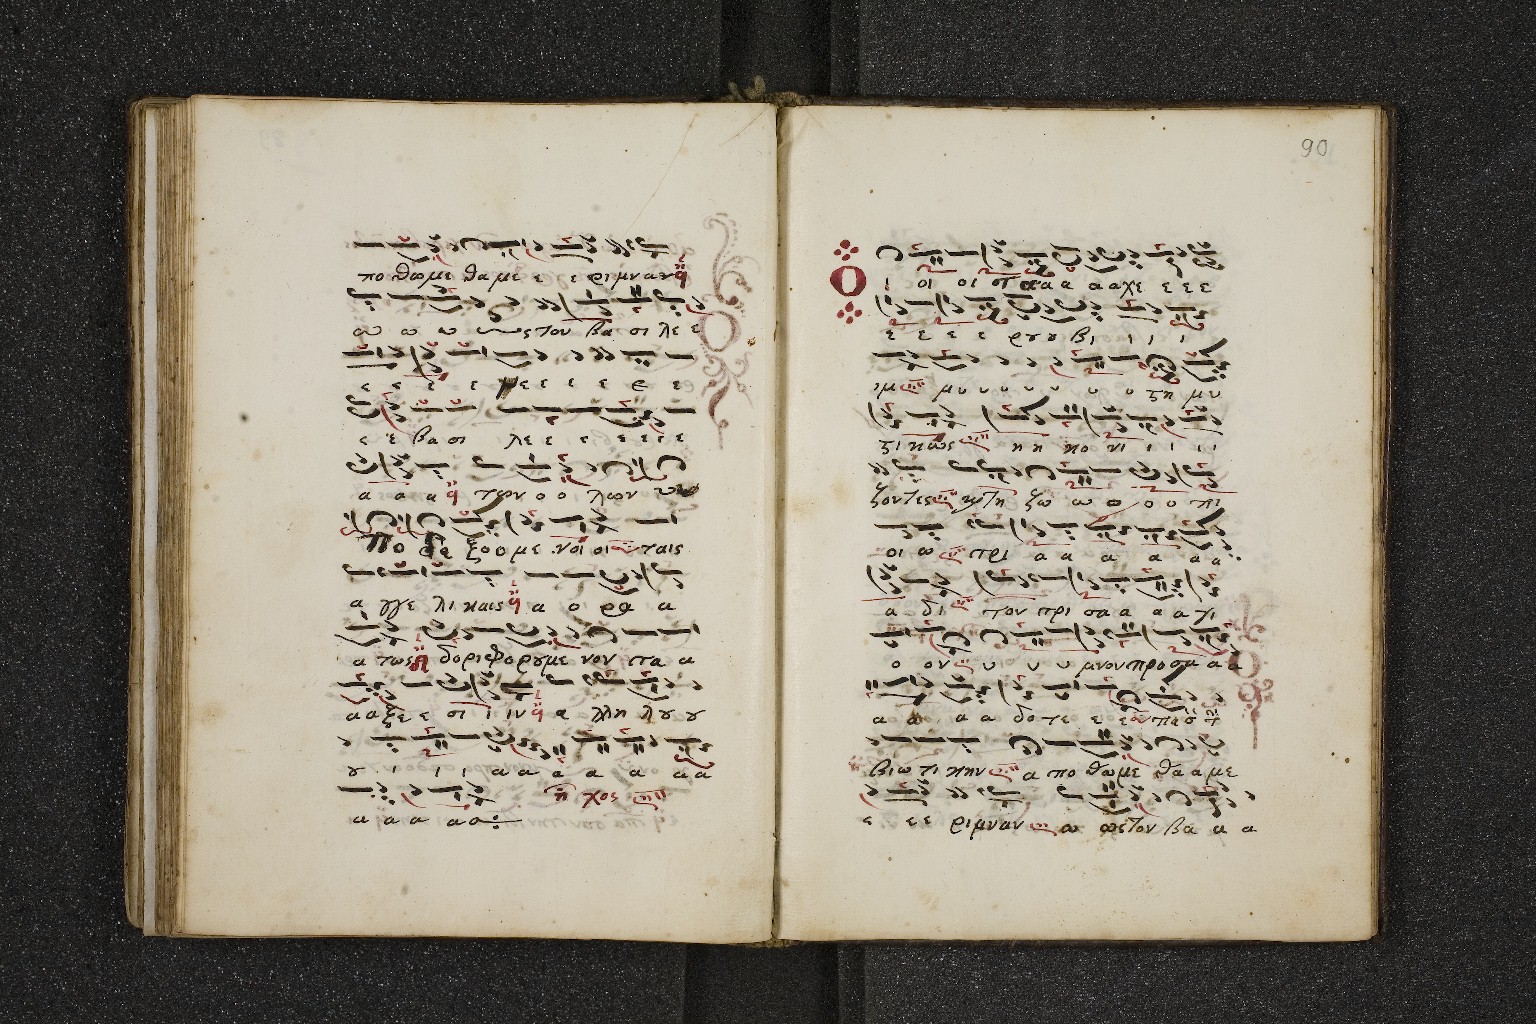 πο θωμε θα με ε ε ριμναν
ω ω ω ως τον βα σι λε ε
ε ε ε ε εε ε ε ε ε
ε ε βα σι λε ε ε ε ε ε ε
α α α των ο ο λων
υπο δε ξο ο με νοι οι ταις
α γγε λι καις α ο ρα α
α τως δοριφορουμε νον τα α
α α ξε ε σι ι ιν α λλη λου ου
ου ι ι ι α α α α α α α
ηχος
α α α α α
90
Ο ι οι οι τα α α α α χε ε ε ε
ε ε ε ε ρου βι ι ι ι
ιμ μυ υ υ υ υ υ υ στη μυ
στι κως η η κο νι ι ι ι ι
ζοντες κ τη ζω ω ο ο ο πι
οι ω τρι α α α α α α
α δι τον τρι σα α α α γι
ο ον υ υ υ μνον προσα α α
α α α α δο τε ε ε οντες πασ
βιω τι κην α πο θωμε θα α με
ε ε ε ριμναν ω ως τον βα α α